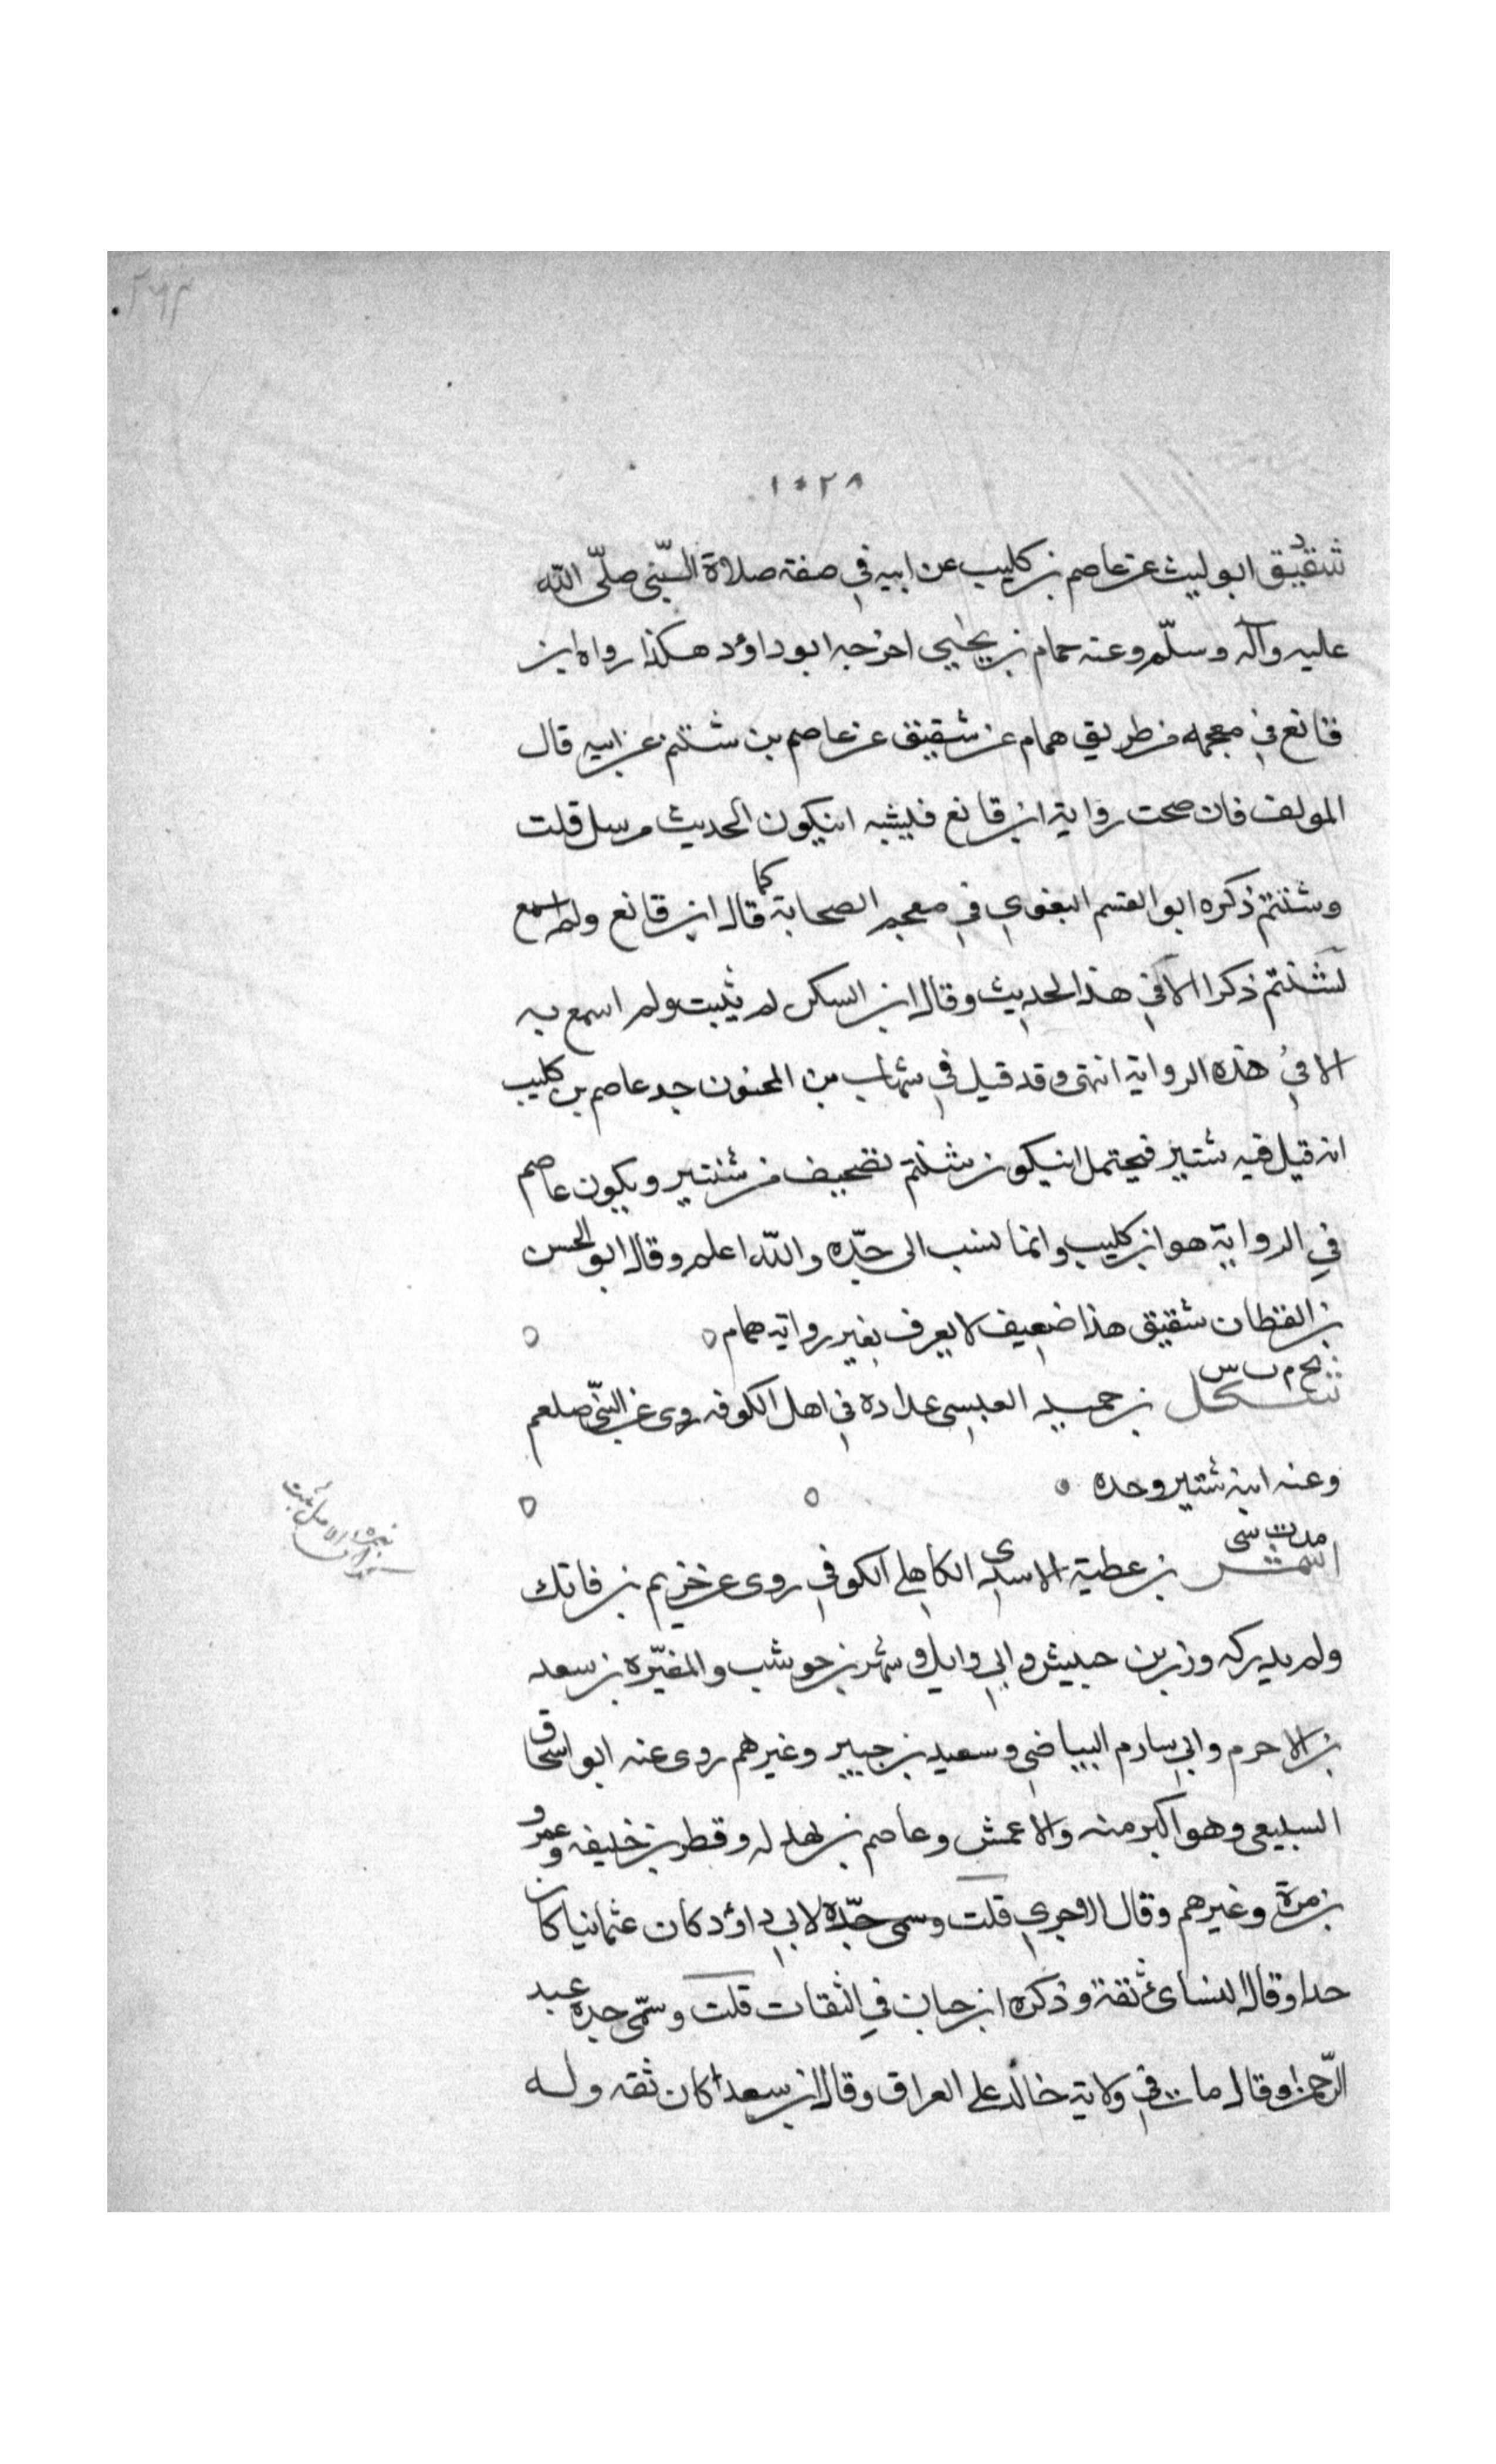 ١٠٢٨
د
شقيق ابو ليث عن عاصم بن كليب عن ابيه في صفة صلاة النبى صلّى الله
عليه وآله وسلّم وعنه همام بن يحيى اخرجه ابو داؤد هكذا رواه ابن
قانع في معجمه من طريق همام عن شقيق عن عاصم بن شنتم عن ابيه قال
المولف فان صحت رواية ابن قانع فيشبه انيكون الحديث مرسل قلت
وشنتم ذكره ابو القسم البغوي في معجم الصحابة كما قال ابن قانع ولم اسمع
لشنتم ذكرا الا في هذا الحديث وقال ابن السكن لم يثبت ولم اسمع به
الا في هذه الرواية انتهى وقد قيل في شهاب بن المجنون جد عاصم بن كليب
انه قيل فيه شتير فيحتمل انيكون شنتم تصحيف من شتير ويكون عاصم
في الرواية هو ابن كليب وانما نسب الى جدّه والله اعلم وقال ابو الحسن
بن القطان شقيق هذا ضعيف لا يعرف بغير رواية همام
بخ م س
شكل بن حميد العبسى عداده في اهل الكوفه روى عن النبّى صلعم
وعنه ابنه شتير وحده
مد ت سى
شمر بن عطية الاسدى الكاهلي الكوفي روى عن خزيم بن فاتك
ولم يدركه وزر بن حبيش وابي وايل وشهر بن حوشب والمغيّره بن سعد
بن الاحرم وابي سادم البياضي وسعيد بن جبير وغيرهم روى عنه ابو اسحاق
السبيعى وهو اكبر منه والاعمش وعاصم بن بهدله وقطر بن خليفه وعمرو
بن مرة وغيرهم وقال الاجري قلت وسمى جدّه لابي داؤد كان عثمانيا كان
حدا وقال النسائ ثقة وذكره ابن حبان في الثقات قلت وسمّى جده عبد
الرّحمن وقال مات في ولاية خالد على العراق وقال ابن سعد كان ثقه وله